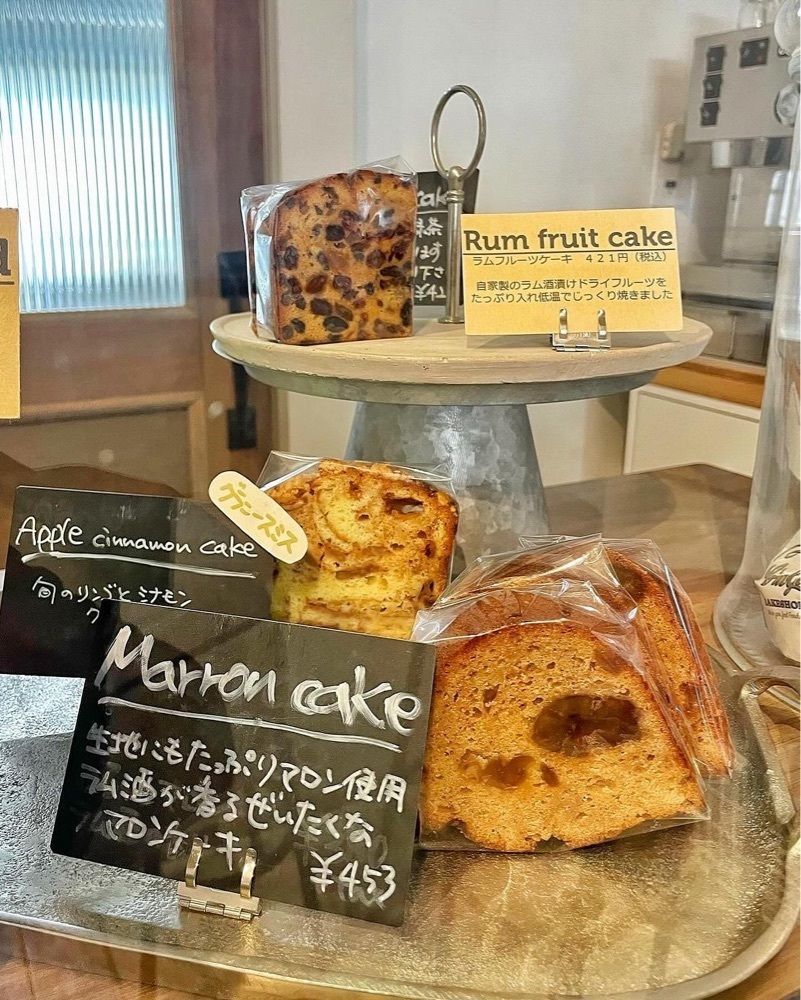 Rum fruit cake
ラムフルーツケーキ 421円（税込）
自家製のラム酒漬けドライフルーツを
たっぷり入れ低温でじっくり焼きました
cake
グラニースミス
Apple cinnamon cake
旬のリンゴとシナモン
Marron cake
生地にもたっぷりマロン使用
ラム酒が香るぜいたくな
マロンケーキ
¥453